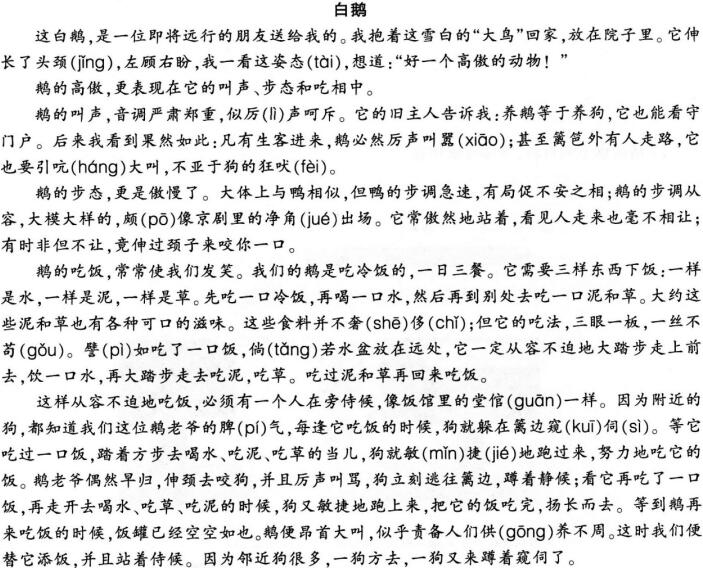 白鹅
这白鹅,是一位即将远行的朋友送给我的。我抱着这雪白的“大鸟”回家,放在院子里。它伸
长了头颈(jǐng),左顾右盼,我一看这姿态(tài),想道:“好一个高傲的动物!”
鹅的高傲,更表现在它的叫声、步态和吃相中。
鹅的叫声,音调严肃郑重,似厉(lì)声呵斥。它的旧主人告诉我:养鹅等于养狗,它也能看守
门户。后来我看到果然如此:凡有生客进来,鹅必然厉声叫嚣(xiāo);甚至篱笆外有人走路,它
也要引吭(háng)大叫,不亚于狗的狂吠(fèi)。
鹅的步态,更是傲慢了。大体上与鸭相似,但鸭的步调急速,有局促不安之相;鹅的步调从
容,大模大样的,颇(pō)像京剧里的净角(jué)出场。它常傲然地站着,看见人走来也毫不相让;
有时非但不让,竟伸过颈子来咬你一口。
鹅的吃饭,常常使我们发笑。我们的鹅是吃冷饭的,一日三餐。它需要三样东西下饭:一样
是水,一样是泥,一样是草。先吃一口冷饭,再喝一口水,然后再到别处去吃一口泥和草。大约这
些泥和草也有各种可口的滋味。这些食料并不奢(shē)侈(chǐ);但它的吃法,三眼一板,一丝不
苟(gǒu)。譬(pì)如吃了一口饭,倘(tǎng)若水盆放在远处,它一定从容不迫地大踏步走上前
去,饮一口水,再大踏步走去吃泥,吃草。吃过泥和草再回来吃饭。
这样从容不迫地吃饭,必须有一个人在旁侍候,像饭馆里的堂倌(guān)一样。因为附近的
狗,都知道我们这位鹅老爷的脾(pí)气,每逢它吃饭的时候,狗就躲在篱边窥(kuī)伺(sì)。等它
吃过一口饭,踏着方步去喝水、吃泥、吃草的当儿,狗就敏(mǐn)捷(jié)地跑过来,努力地吃它的
饭。鹅老爷偶然早归,伸颈去咬狗,并且厉声叫骂,狗立刻逃往篱边,蹲着静候;看它再吃了一口
饭,再走开去喝水、吃草、吃泥的时候,狗又敏捷地跑上来,把它的饭吃完,扬长而去。等到鹅再
来吃饭的时候,饭罐已经空空如也。鹅便昂首大叫,似乎责备人们供(gōng)养不周。这时我们便
替它添饭,并且站着侍候。因为邻近狗很多,一狗方去,一狗又来蹲着窥伺了。